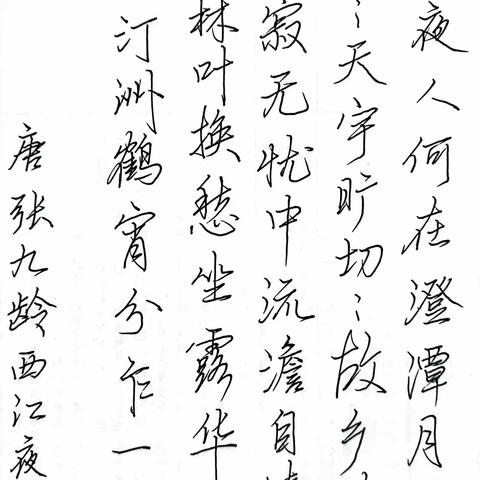 夜人何在澄潭月
々天宇旷切々故乡
寂无扰中流澹自
林叶换愁坐露华
汀洲鹤宵分乍一
唐张九龄西江夜